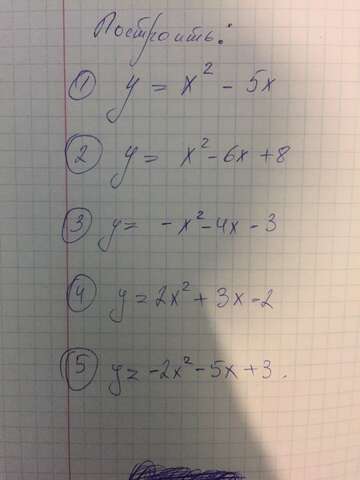 Построить:
① y = x² - 5x
② y = x² - 6x + 8
③ y = -x² - 4x - 3
④ y = 2x² + 3x - 2
⑤ y = -2x² - 5x + 3.